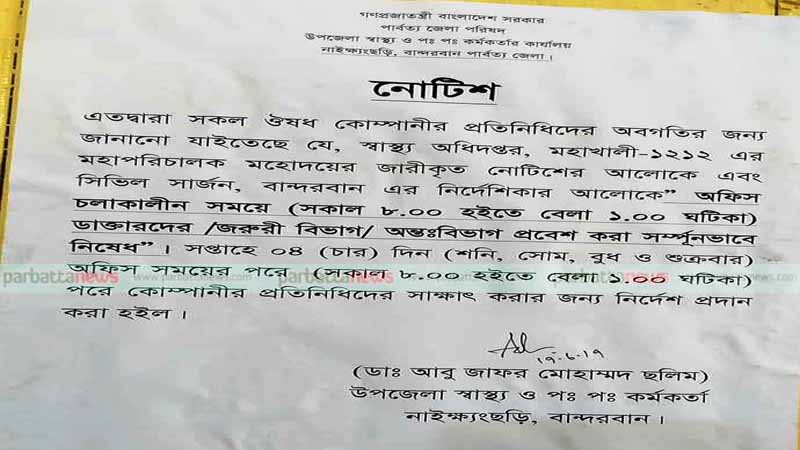 গণপ্রজাতন্ত্রী বাংলাদেশ সরকার
পার্বত্য জেলা পরিষদ
উপজেলা স্বাস্থ্য ও পঃ পঃ কর্মকর্তার কার্যালয়
নাইক্ষ্যংছড়ি, বান্দরবান পার্বত্য জেলা।
নোটিশ
এতদ্বারা সকল ঔষধ কোম্পানীর প্রতিনিধিদের অবগতির জন্য
জানানো যাইতেছে যে, স্বাস্থ্য অধিদপ্তর, মহাখালী-১২১২ এর
মহাপরিচালক মহোদয়ের জারীকৃত নোটিশের আলোকে এবং
সিভিল সার্জন, বান্দরবান এর নির্দেশিকার আলোকে” অফিস
চলাকালীন সময়ে (সকাল ৮.০০ হইতে বেলা ১.০০ ঘটিকা)
ডাক্তারদের /জরুরী বিভাগ/ অন্তঃবিভাগ প্রবেশ করা সর্ম্পূনভাবে
নিষেধ”। সপ্তাহে ০৪ (চার) দিন (শনি, সোম, বুধ ও শুক্রবার)
অফিস সময়ের পরে (সকাল ৮.০০ হইতে বেলা ১.০০ ঘটিকা)
parbattanews www.parbattanews.com parbattanews
পরে কোম্পানীর প্রতিনিধিদের সাক্ষাৎ করার জন্য নির্দেশ প্রদান
করা হইল।
(ডাঃ আবু জাফর মোহাম্মদ ছলিম)
উপজেলা স্বাস্থ্য ও পঃ পঃ কর্মকর্তা
নাইক্ষ্যংছড়ি, বান্দরবান।